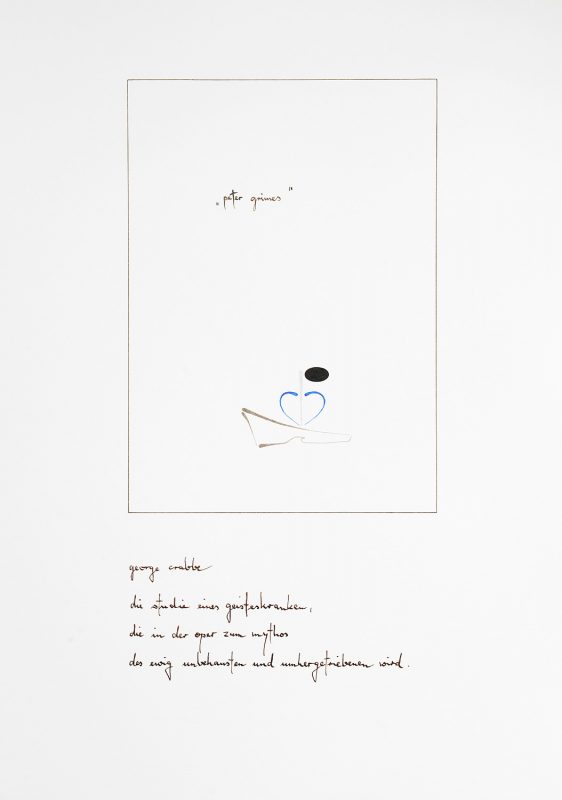 „peter grimes"
george crabbe
die studie eines geisteskranken,
die in der oper zum mythos
des ewig unbehausten und umhergetriebenen wird.